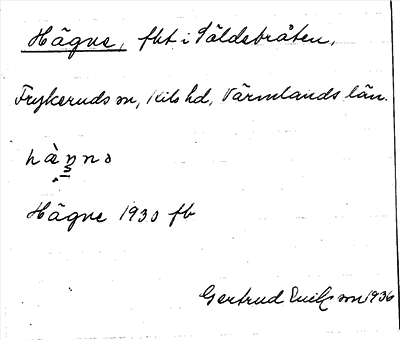 Hägne, fbt i Säldebråten,
Frykeruds sn, Kils hd, Värmlands län.
hänna
Hägne 1930 fb
Gertrud Ericsson 1936